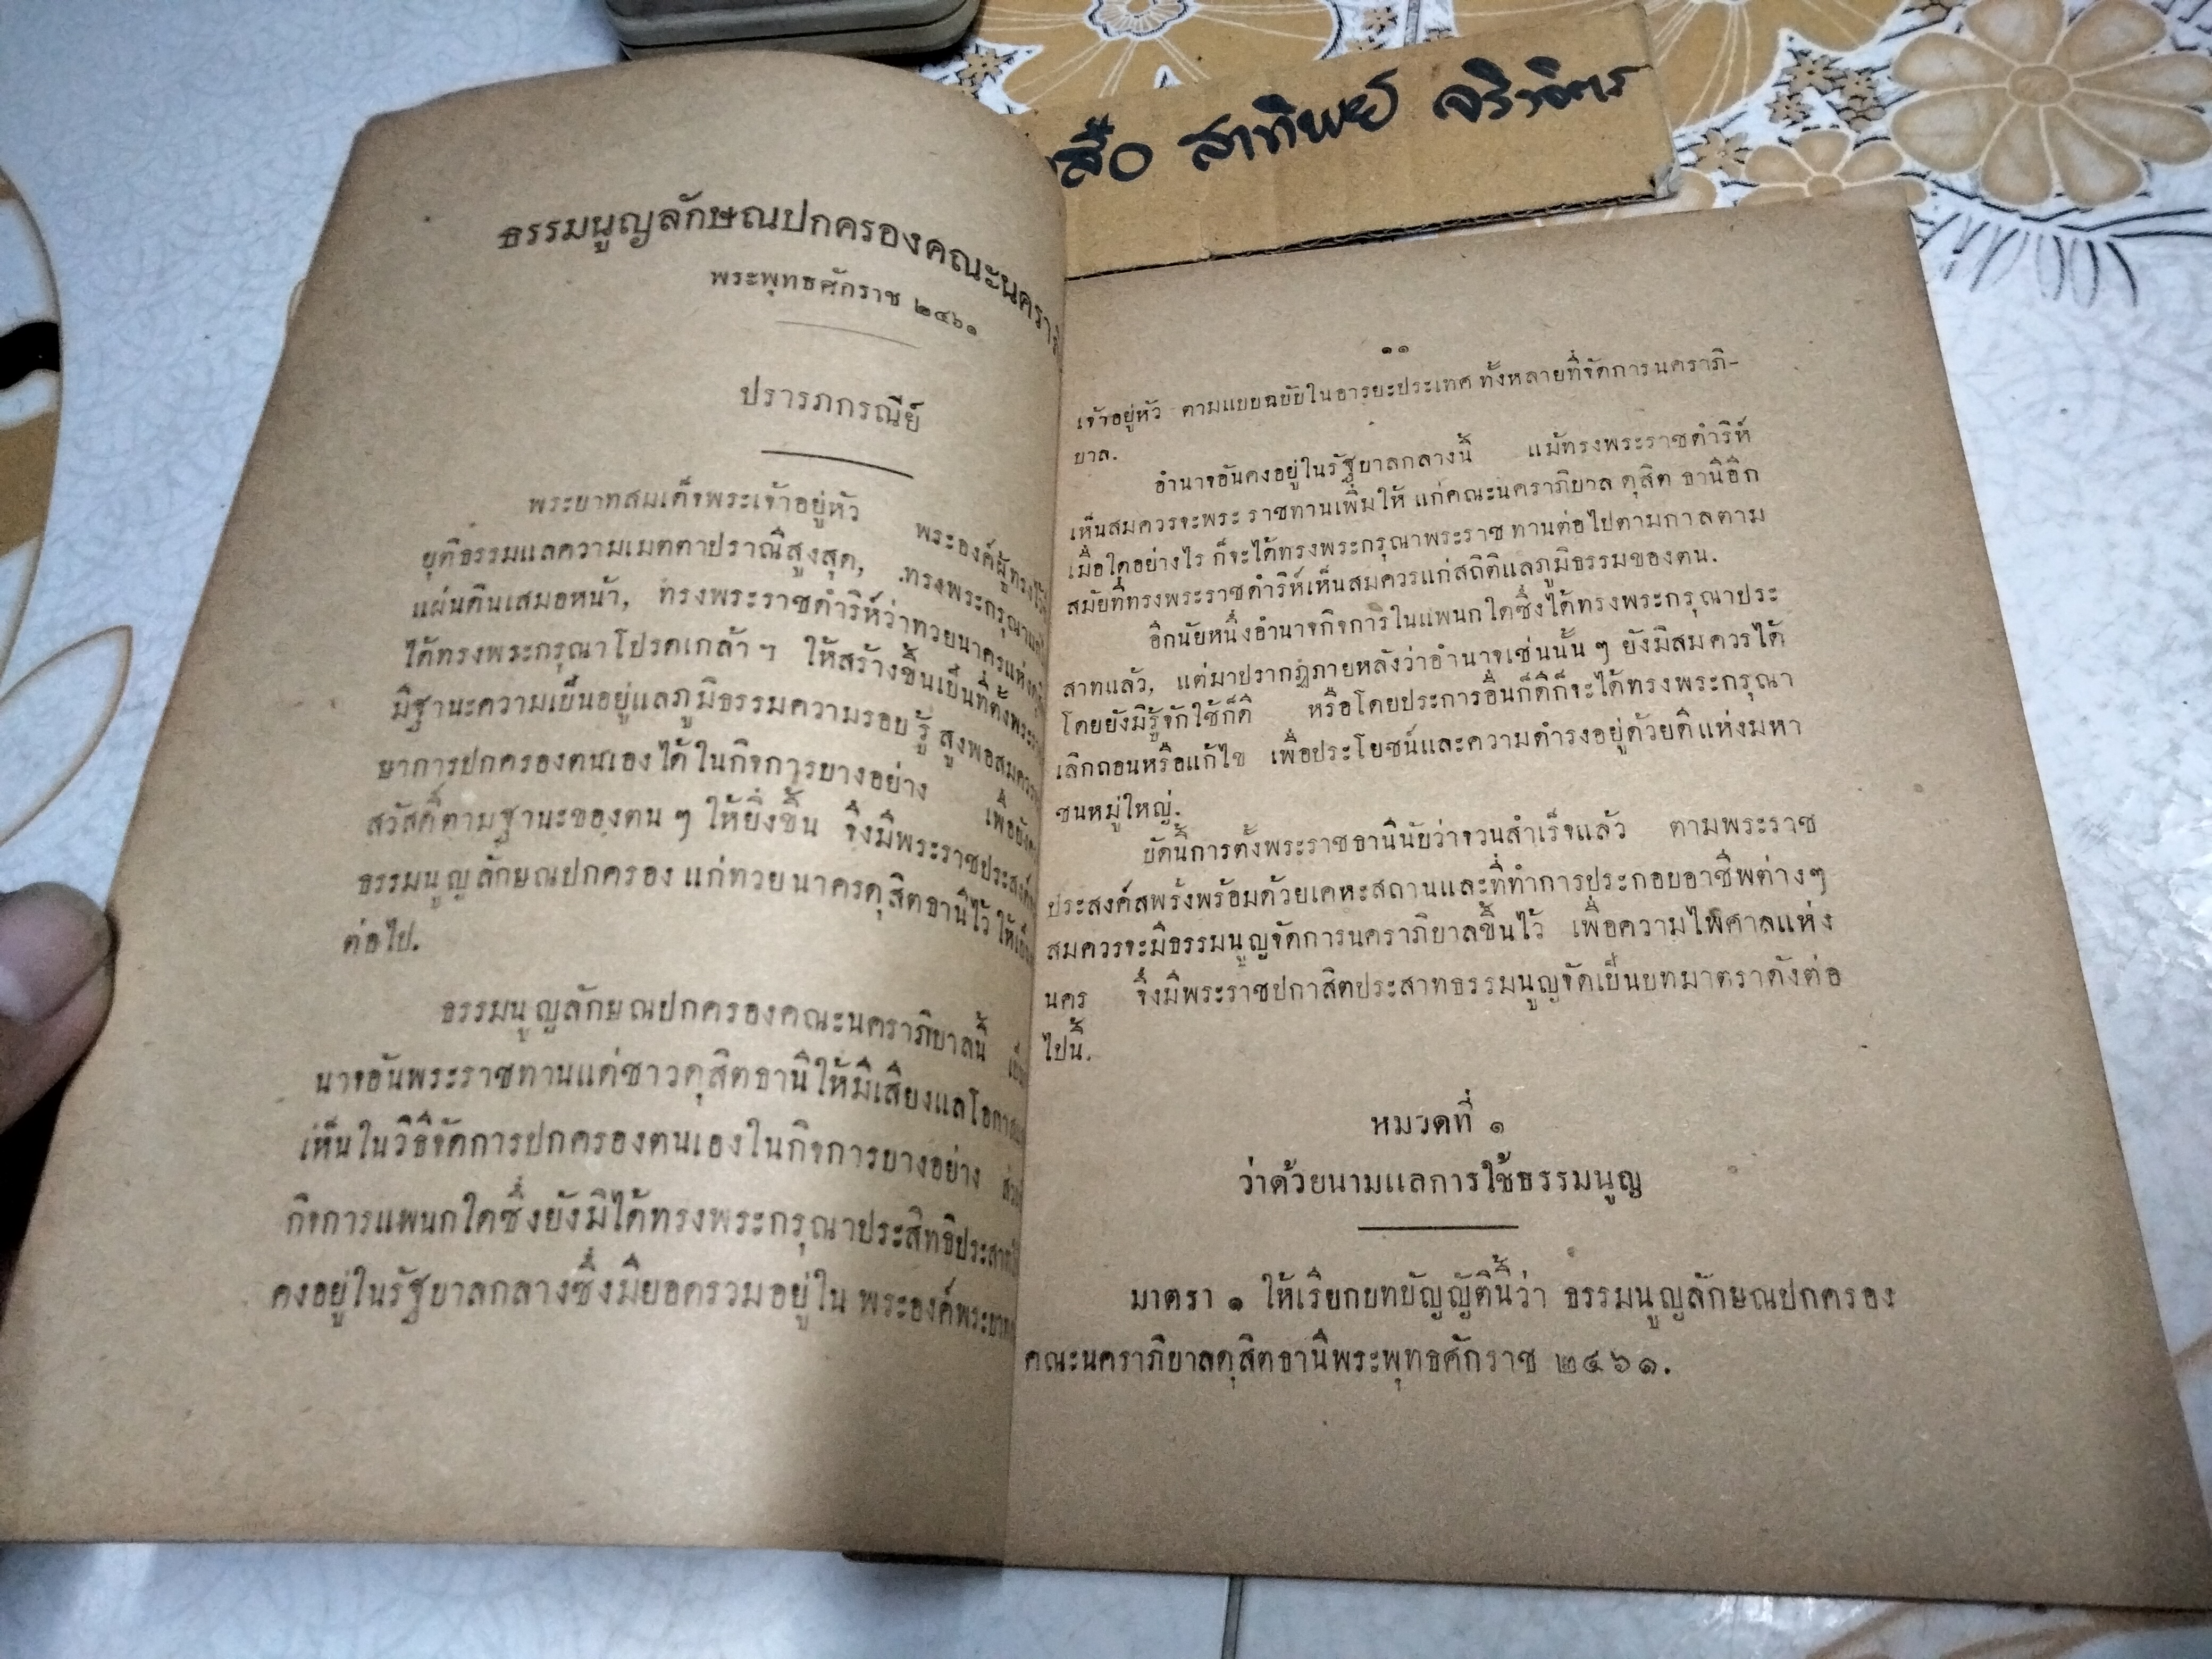 สือ สาทิพย์ จริวจิตร
ธรรมนูญลักษณปกครองคณะนครา
พระพุทธศักราช ๒๔๖๑
ปรารภกรณีย์
พระบาทสมเด็จพระเจ้าอยู่หัว พระองค์ผู้ทรงไว้
ยุติธรรมแลความเมตตาปราณีสูงสุด, ทรงพระกรุณา
แผ่นดินเสมอหน้า, ทรงพระราชดำริห์ว่าทวยนาครแห่ง
ได้ทรงพระกรุณาโปรดเกล้าฯ ให้สร้างขึ้นเป็นที่ตั้งพระ
มีฐานะความเป็นอยู่แลภูมิธรรมความรอบรู้ สูงพอสมควร
ษาการปกครองตนเองได้ในกิจการบางอย่าง เพื่อยัง
สวัสดิ์ตามฐานะของตน ๆ ให้ยิ่งขึ้น จึงมีพระราชประสงค์
ธรรมนูญลักษณปกครอง แก่ทวยนาครดุสิตธานีไว้ ให้เป็น
ต่อไป.
ธรรมนูญลักษณปกครองคณะนคราภิบาลนี้
นาจอันพระราชทานแด่ชาวดุสิตธานีให้มีเสียงแลโอกาส
เห็นในวิธีจัดการปกครองตนเองในกิจการบางอย่าง ส่วน
กิจการแพนกใดซึ่งยังมิได้ทรงพระกรุณาประสิทธิประสาท
คงอยู่ในรัฐบาลกลางซึ่งมียอดรวมอยู่ใน พระองค์พระบาท
๑๑
เจ้าอยู่หัว ตามแบบฉบับในอารยะประเทศ ทั้งหลายที่จัดการนคราภิ-
บาล.
อำนาจอันคงอยู่ในรัฐบาลกลางนี้ แม้ทรงพระราชดำริห์
เห็นสมควรจะพระราชทานเพิ่มให้ แก่คณะนคราภิบาล ดุสิต ธานีอีก
เมื่อใดอย่างไร ก็จะได้ทรงพระกรุณาพระราชทานต่อไปตามกาลตาม
สมัยที่ทรงพระราชดำริห์เห็นสมควรแก่สถิติแลภูมิธรรมของตน.
อีกนัยหนึ่งอำนาจกิจการในแพนกใดซึ่งได้ทรงพระกรุณาประ
สาทแล้ว, แต่มาปรากฏภายหลังว่าอำนาจเช่นนั้น ๆ ยังมิสมควรได้
โดยยังมิรู้จักใช้ก็ดี หรือโดยประการอื่นก็ดีก็จะได้ทรงพระกรุณา
เลิกถอนหรือแก้ไข เพื่อประโยชน์และความดำรงอยู่ด้วยดีแห่งมหา
ชนหมู่ใหญ่.
บัดนี้การตั้งพระราชธานีนับว่าจวนสำเร็จแล้ว ตามพระราช
ประสงค์สพรั่งพร้อมด้วยเคหะสถานและที่ทำการประกอบอาชีพต่างๆ
สมควรจะมีธรรมนูญจัดการนคราภิบาลขึ้นไว้ เพื่อความไพศาลแห่ง
นคร จึ่งมีพระราชปกาสิตประสาทธรรมนูญจัดเป็นบทมาตราดังต่อ
ไปนี้.
หมวดที่ ๑
ว่าด้วยนามแลการใช้ธรรมนูญ
มาตรา ๑ ให้เรียกบทบัญญัตินี้ว่า ธรรมนูญลักษณปกครอง
คณะนคราภิบาลดุสิตธานีพระพุทธศักราช ๒๔๖๑.